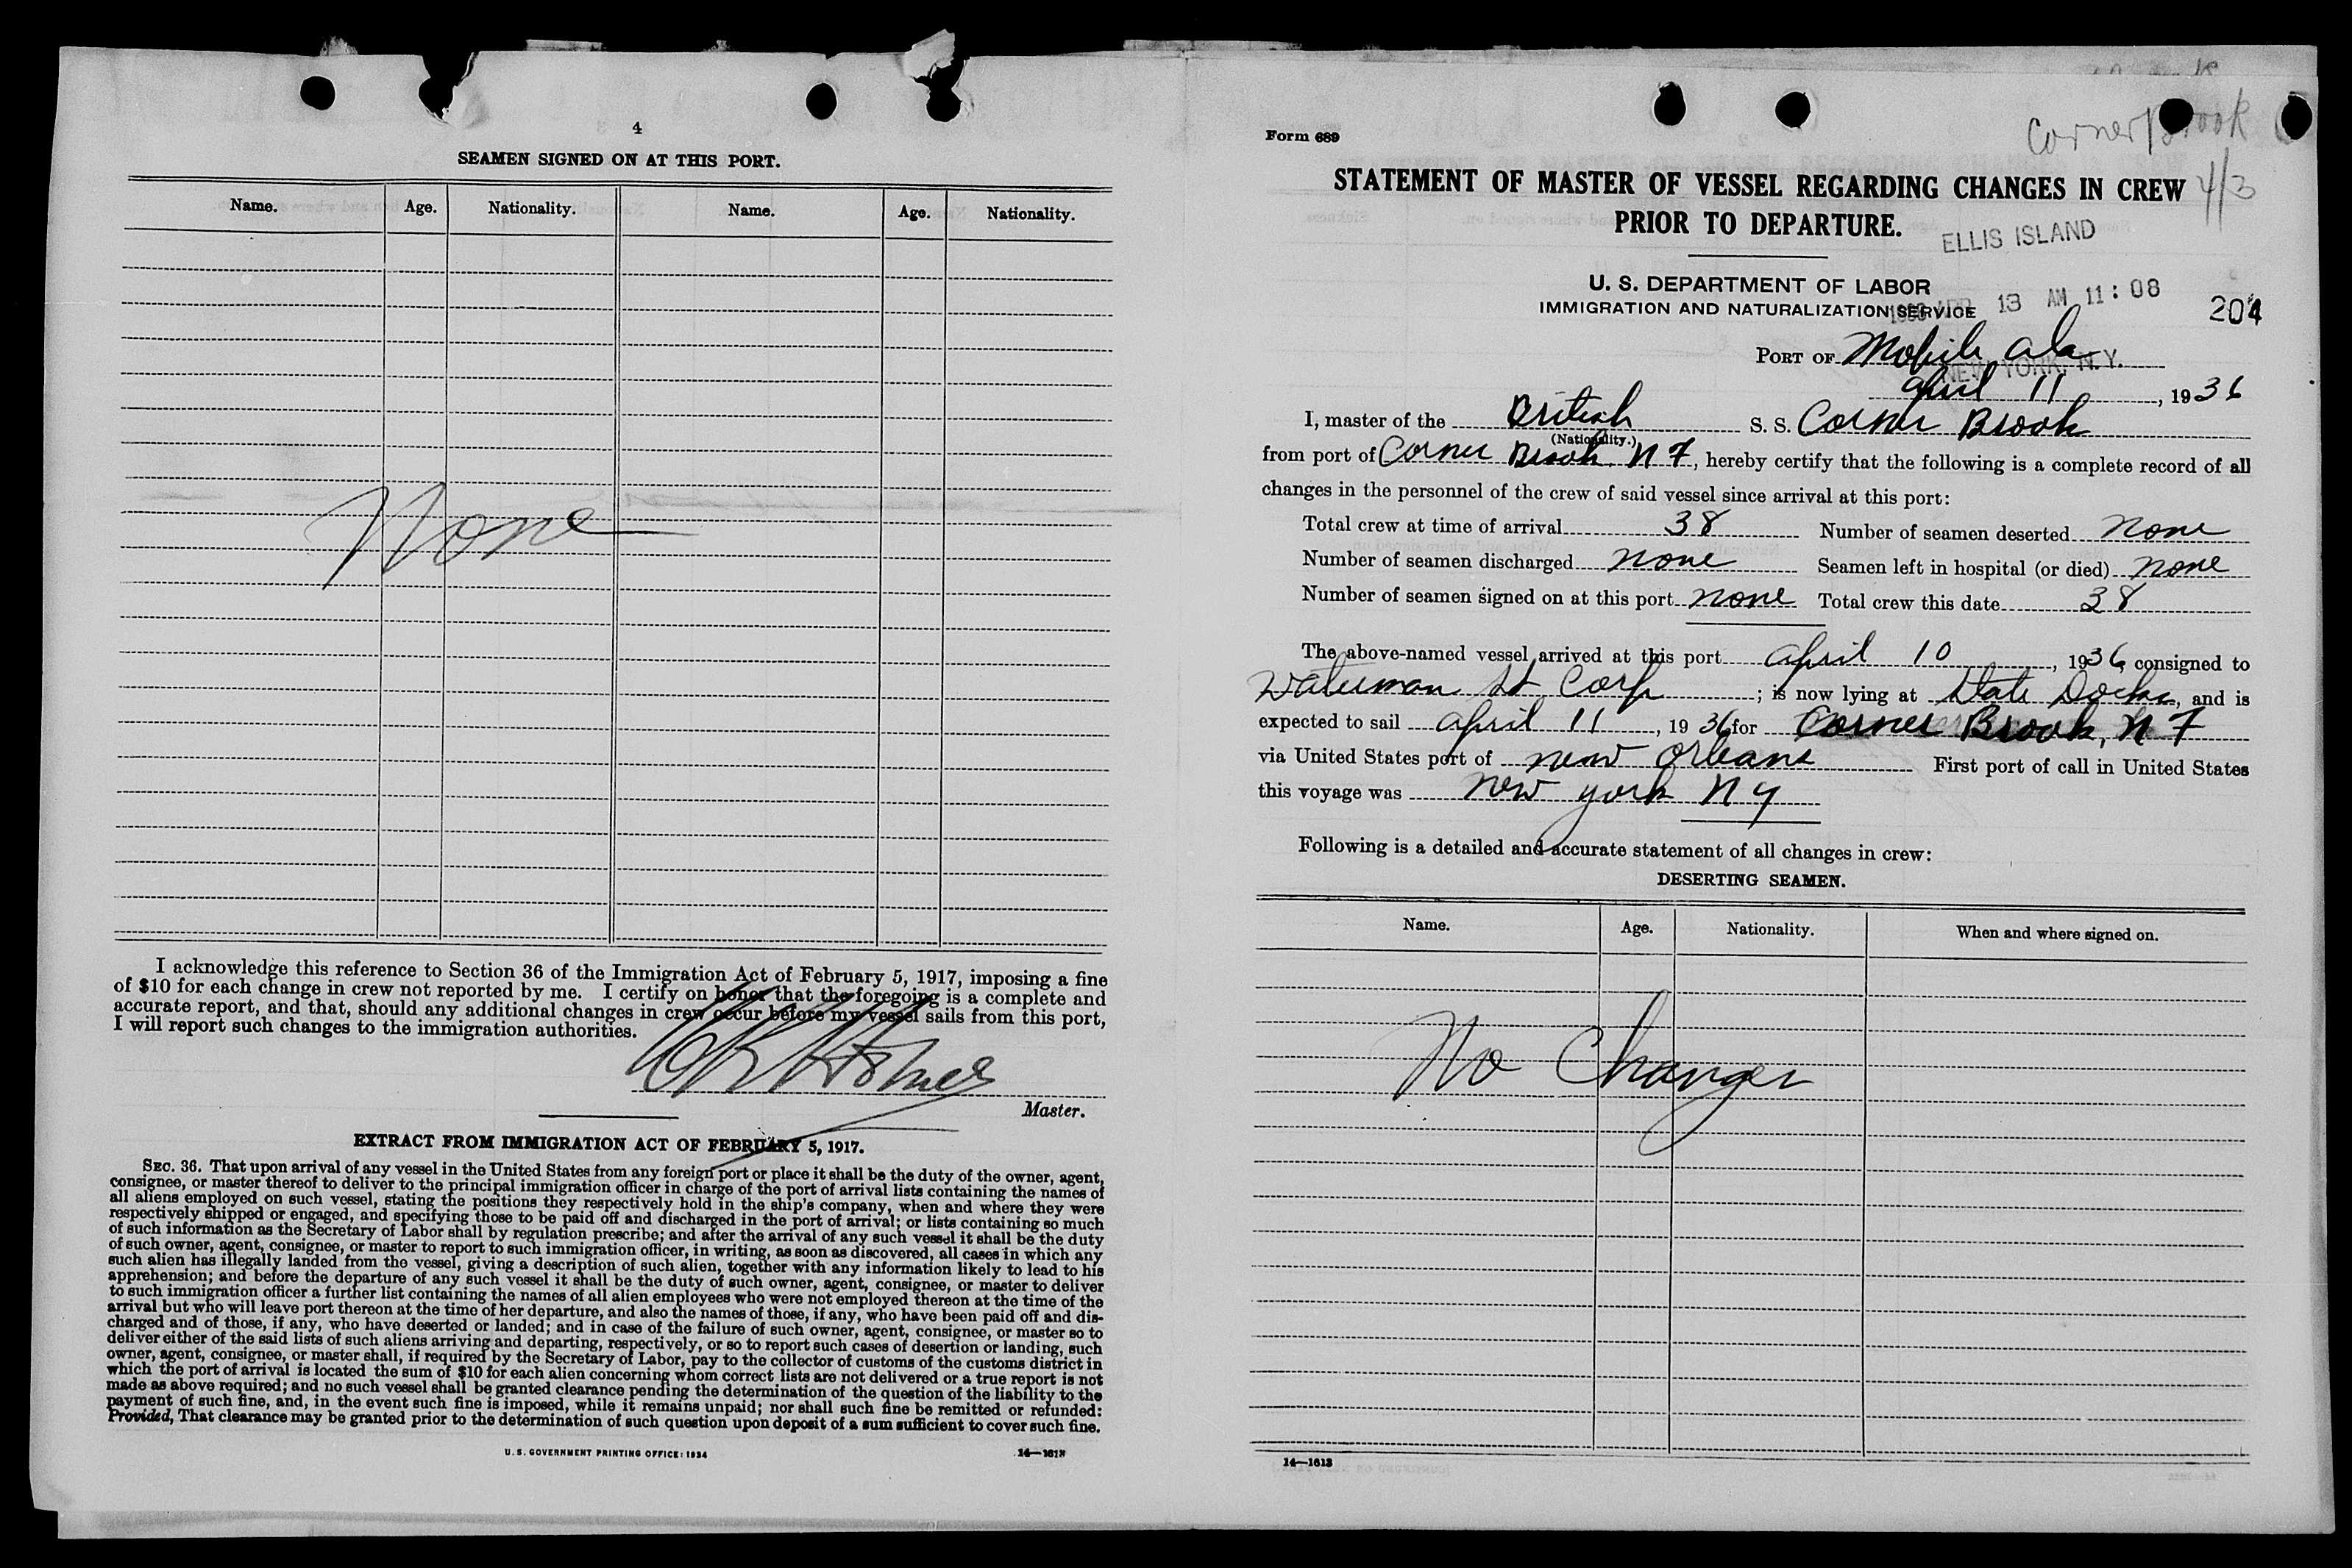 4
SEAMEN SIGNED ON AT THIS PORT.
Name. Age. Nationality. Name. Age. Nationality.
None
I acknowledge this reference to Section 36 of the Immigration Act of February 5, 1917, imposing a fine
of $10 for each change in crew not reported by me. I certify on honor that the foregoing is a complete and
accurate report, and that, should any additional changes in crew occur before my vessel sails from this port,
I will report such changes to the immigration authorities.
Holmes
Master.
EXTRACT FROM IMMIGRATION ACT OF FEBRUARY 5, 1917.
SEC. 36. That upon arrival of any vessel in the United States from any foreign port or place it shall be the duty of the owner, agent,
consignee, or master thereof to deliver to the principal immigration officer in charge of the port of arrival lists containing the names of
all aliens employed on such vessel, stating the positions they respectively hold in the ship's company, when and where they were
respectively shipped or engaged, and specifying those to be paid off and discharged in the port of arrival; or lists containing so much
of such information as the Secretary of Labor shall by regulation prescribe; and after the arrival of any such vessel it shall be the duty
of such owner, agent, consignee, or master to report to such immigration officer, in writing, as soon as discovered, all cases in which any
such alien has illegally landed from the vessel, giving a description of such alien, together with any information likely to lead to his
apprehension; and before the departure of any such vessel it shall be the duty of such owner, agent, consignee, or master to deliver
to such immigration officer a further list containing the names of all alien employees who were not employed thereon at the time of the
arrival but who will leave port thereon at the time of her departure, and also the names of those, if any, who have been paid off and dis-
charged and of those, if any, who have deserted or landed; and in case of the failure of such owner, agent, consignee, or master so to
deliver either of the said lists of such aliens arriving and departing, respectively, or so to report such cases of desertion or landing, such
owner, agent, consignee, or master shall, if required by the Secretary of Labor, pay to the collector of customs of the customs district in
which the port of arrival is located the sum of $10 for each alien concerning whom correct lists are not delivered or a true report is not
made as above required; and no such vessel shall be granted clearance pending the determination of the question of the liability to the
payment of such fine, and, in the event such fine is imposed, while it remains unpaid; nor shall such fine be remitted or refunded:
Provided, That clearance may be granted prior to the determination of such question upon deposit of a sum sufficient to cover such fine.
U. S. GOVERNMENT PRINTING OFFICE: 1934 14—1613
Corner Brook
4/3
Form 689
STATEMENT OF MASTER OF VESSEL REGARDING CHANGES IN CREW
PRIOR TO DEPARTURE.
ELLIS ISLAND
U. S. DEPARTMENT OF LABOR
IMMIGRATION AND NATURALIZATION SERVICE
13 AM 11:08
204
PORT OF Mobile Ala
NEW YORK, N.Y.
April 11, 1936
I, master of the British S. S. Corner Brook
(Nationality.)
from port of Corner Brook, N F, hereby certify that the following is a complete record of all
changes in the personnel of the crew of said vessel since arrival at this port:
Total crew at time of arrival 38 Number of seamen deserted none
Number of seamen discharged none Seamen left in hospital (or died) none
Number of seamen signed on at this port none Total crew this date 38
The above-named vessel arrived at this port April 10, 1936, consigned to
Waterman St Corp; is now lying at State Docks, and is
expected to sail April 11, 1936 for Corner Brook, N F
via United States port of new Orleans First port of call in United States
this voyage was New York N Y
Following is a detailed and accurate statement of all changes in crew:
DESERTING SEAMEN.
Name. Age. Nationality. When and where signed on.
No Changes
14—1613